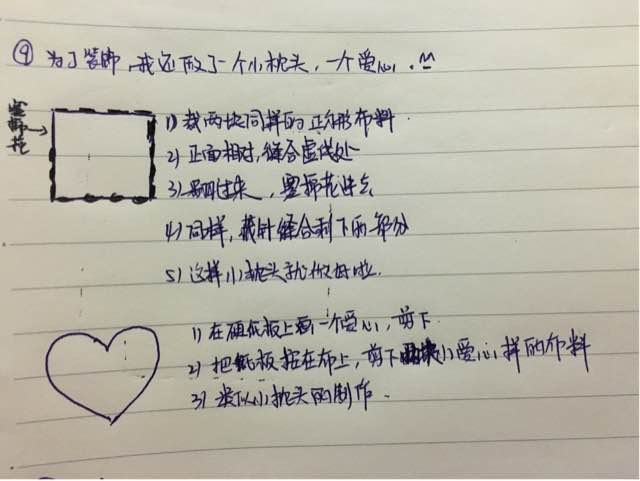 ④ 为了装饰,我还放了一个小枕头,一个爱心.
塞棉花
1) 裁两块同样的正方形布料
2) 正面相对,缝合虚线处
3) 翻过来,塞棉花进去
4) 同样,藏针缝合剩下的部分
5) 这样小枕头就做好啦.
1) 在硬纸板上画一个爱心,剪下
2) 把纸板按在布上,剪下两块小爱心样的布料
3) 类似小枕头的制作.